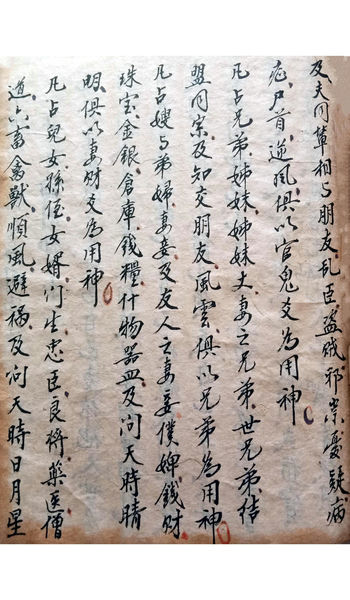 及夫同輩相与朋友乱臣盗贼邪祟憂疑病
症尸首逆風俱以官鬼爻為用神
凡占兄弟姉妹姉妹丈妻之兄弟世兄弟結
盟同宗及知交朋友風雲俱以兄弟為用神
凡占嫂与弟婦妻妾及友人之妻妾僕婢錢財
珠宝金銀倉庫錢糧什物器皿及问天時晴
明俱以妻财爻為用神
凡占兒女孫侄女婿门生忠臣良將藥医僧
道六畜禽獸順風避禍及问天時日月星